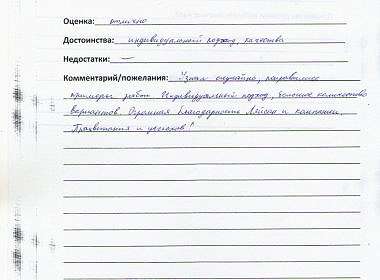 Оценка: отлично
Достоинства: индивидуальный подход, качество
Недостатки: —
Комментарий/пожелания: Узнал случайно, понравились
примеры работ. Индивидуальный подход, большое количество
вариантов. Огромная благодарность Ляйсан и компании.
Процветания и успехов!